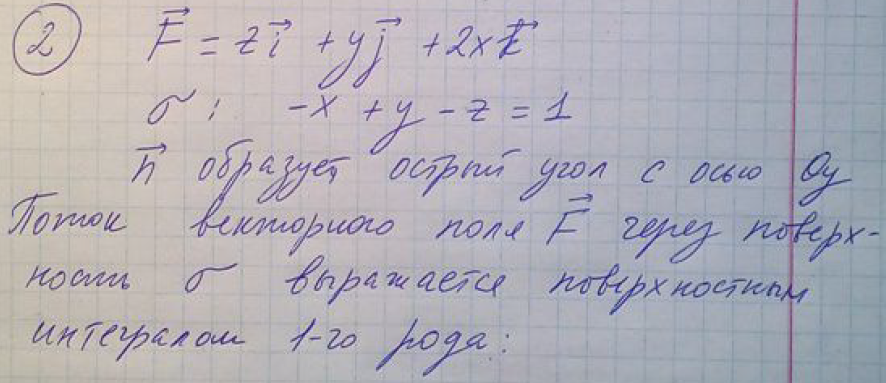 ② F⃗ = zi⃗ + yj⃗ + 2xk⃗
σ: -x + y - z = 1
n⃗ образует острый угол с осью Oy
Поток векторного поля F⃗ через поверх-
ность σ выражается поверхностным
интегралом 1-го рода: